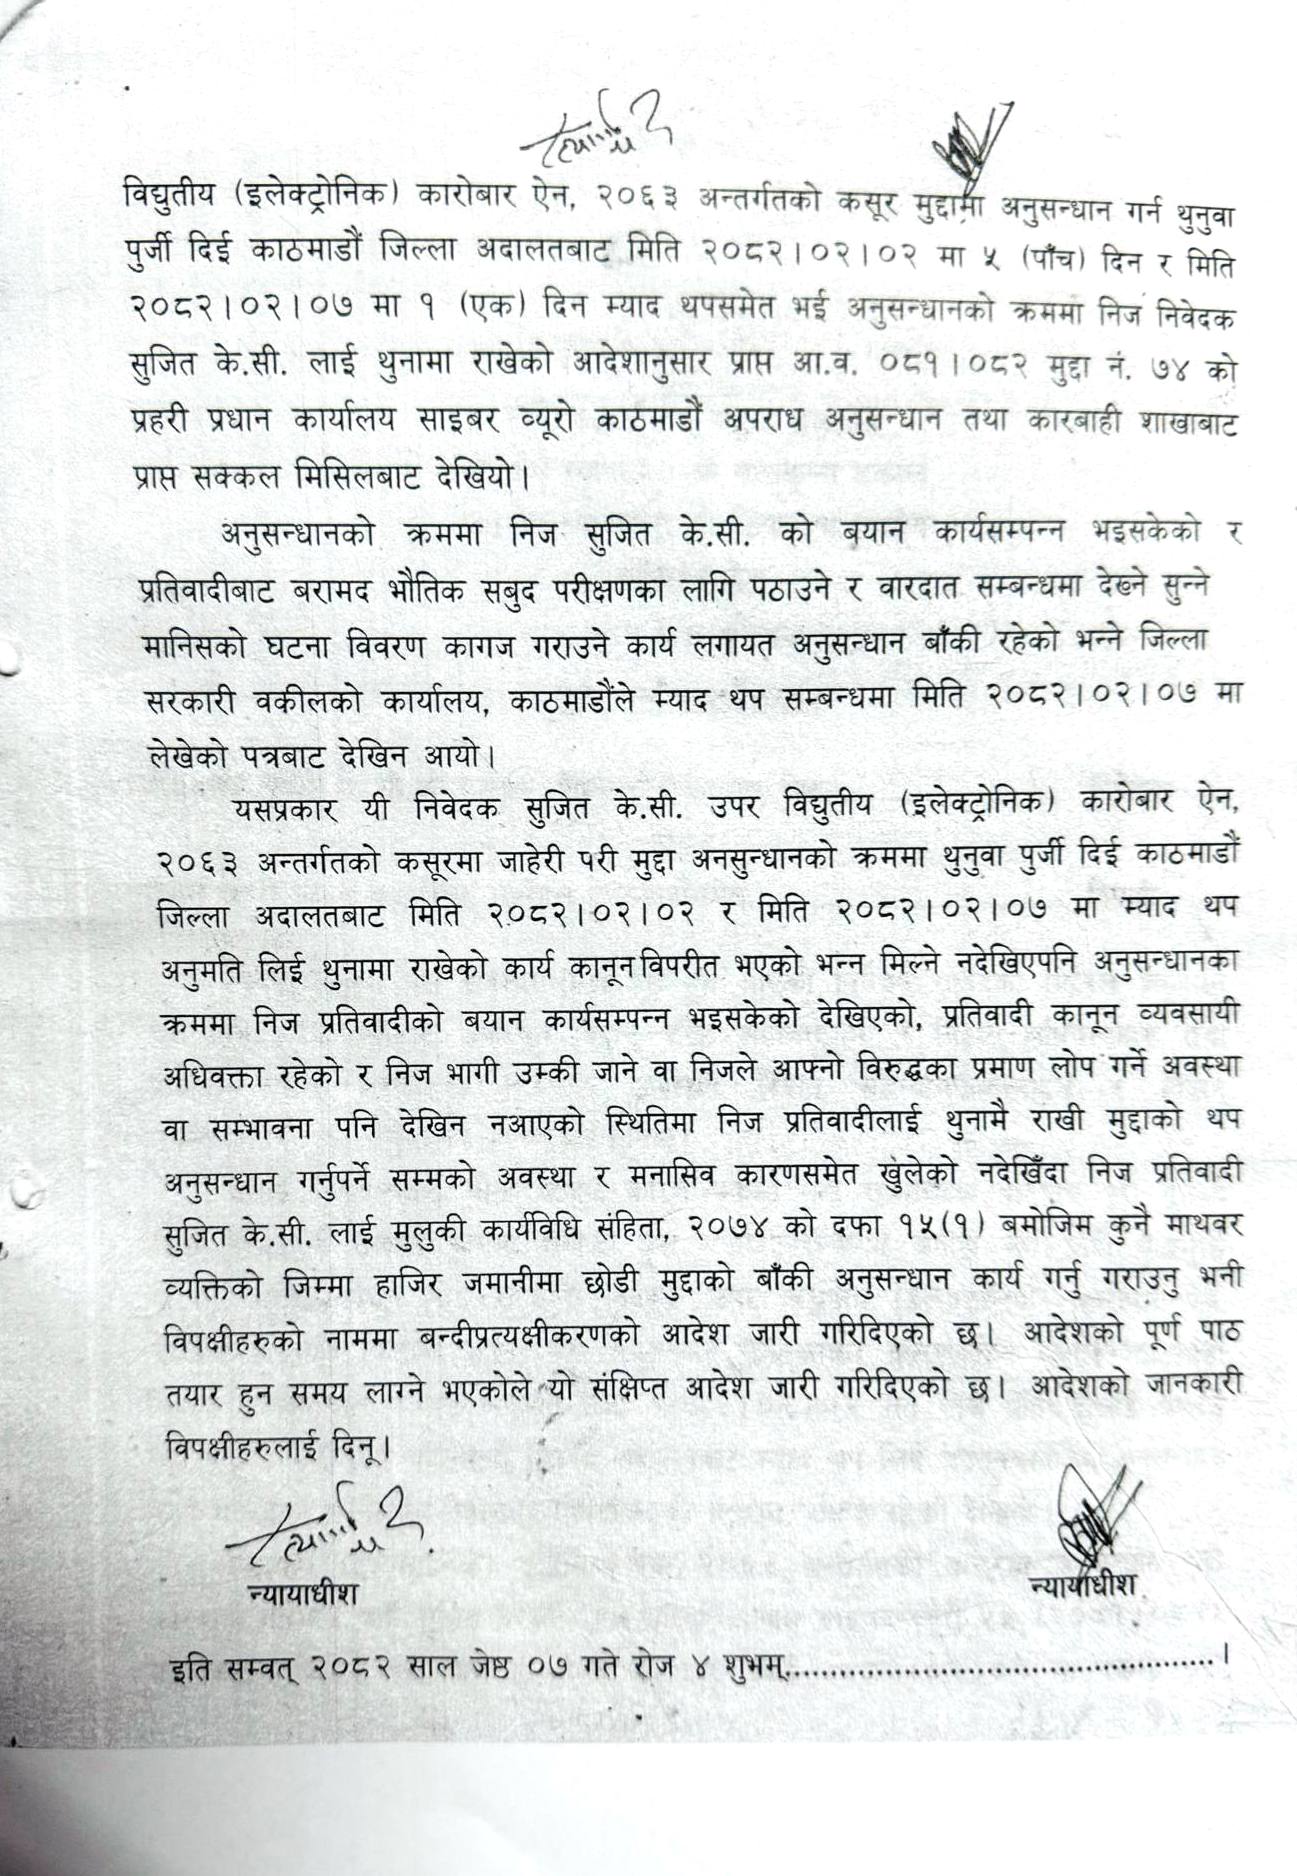 विद्युतीय (इलेक्ट्रोनिक) कारोबार ऐन, २०६३ अन्तर्गतको कसूर मुद्दामा अनुसन्धान गर्न थुनुवा
पुर्जी दिई काठमाडौं जिल्ला अदालतबाट मिति २०८२।०२।०२ मा ५ (पाँच) दिन र मिति
२०८२।०२।०७ मा १ (एक) दिन म्याद थपसमेत भई अनुसन्धानको क्रममा निज निवेदक
सुजित के.सी. लाई थुनामा राखेको आदेशानुसार प्राप्त आ.व. ०८१।०८२ मुद्दा नं. ७४ को
प्रहरी प्रधान कार्यालय साइबर व्यूरो काठमाडौं अपराध अनुसन्धान तथा कारबाही शाखाबाट
प्राप्त सक्कल मिसिलबाट देखियो।
अनुसन्धानको क्रममा निज सुजित के.सी. को बयान कार्यसम्पन्न भइसकेको र
प्रतिवादीबाट बरामद भौतिक सबुद परीक्षणका लागि पठाउने र वारदात सम्बन्धमा देख्ने सुन्ने
मानिसको घटना विवरण कागज गराउने कार्य लगायत अनुसन्धान बाँकी रहेको भन्ने जिल्ला
सरकारी वकीलको कार्यालय, काठमाडौंले म्याद थप सम्बन्धमा मिति २०८२।०२।०७ मा
लेखेको पत्रबाट देखिन आयो।
यसप्रकार यी निवेदक सुजित के.सी. उपर विद्युतीय (इलेक्ट्रोनिक) कारोबार ऐन,
२०६३ अन्तर्गतको कसूरमा जाहेरी परी मुद्दा अनसुन्धानको क्रममा थुनुवा पुर्जी दिई काठमाडौं
जिल्ला अदालतबाट मिति २०८२।०२।०२ र मिति २०८२।०२।०७ मा म्याद थप
अनुमति लिई थुनामा राखेको कार्य कानून विपरीत भएको भन्न मिल्ने नदेखिएपनि अनुसन्धानका
क्रममा निज प्रतिवादीको बयान कार्यसम्पन्न भइसकेको देखिएको, प्रतिवादी कानून व्यवसायी
अधिवक्ता रहेको र निज भागी उम्की जाने वा निजले आफ्नो विरुद्धका प्रमाण लोप गर्ने अवस्था
वा सम्भावना पनि देखिन नआएको स्थितिमा निज प्रतिवादीलाई थुनामै राखी मुद्दाको थप
अनुसन्धान गर्नुपर्ने सम्मको अवस्था र मनासिव कारणसमेत खुलेको नदेखिँदा निज प्रतिवादी
सुजित के.सी. लाई मुलुकी कार्यविधि संहिता, २०७४ को दफा १५(१) बमोजिम कुनै माथवर
व्यक्तिको जिम्मा हाजिर जमानीमा छोडी मुद्दाको बाँकी अनुसन्धान कार्य गर्नु गराउनु भनी
विपक्षीहरुको नाममा बन्दीप्रत्यक्षीकरणको आदेश जारी गरिदिएको छ। आदेशको पूर्ण पाठ
तयार हुन समय लाग्ने भएकोले यो संक्षिप्त आदेश जारी गरिदिएको छ। आदेशको जानकारी
विपक्षीहरुलाई दिनू।
न्यायाधीश न्यायाधीश
इति सम्वत् २०८२ साल जेष्ठ ०७ गते रोज ४ शुभम्..................................................।